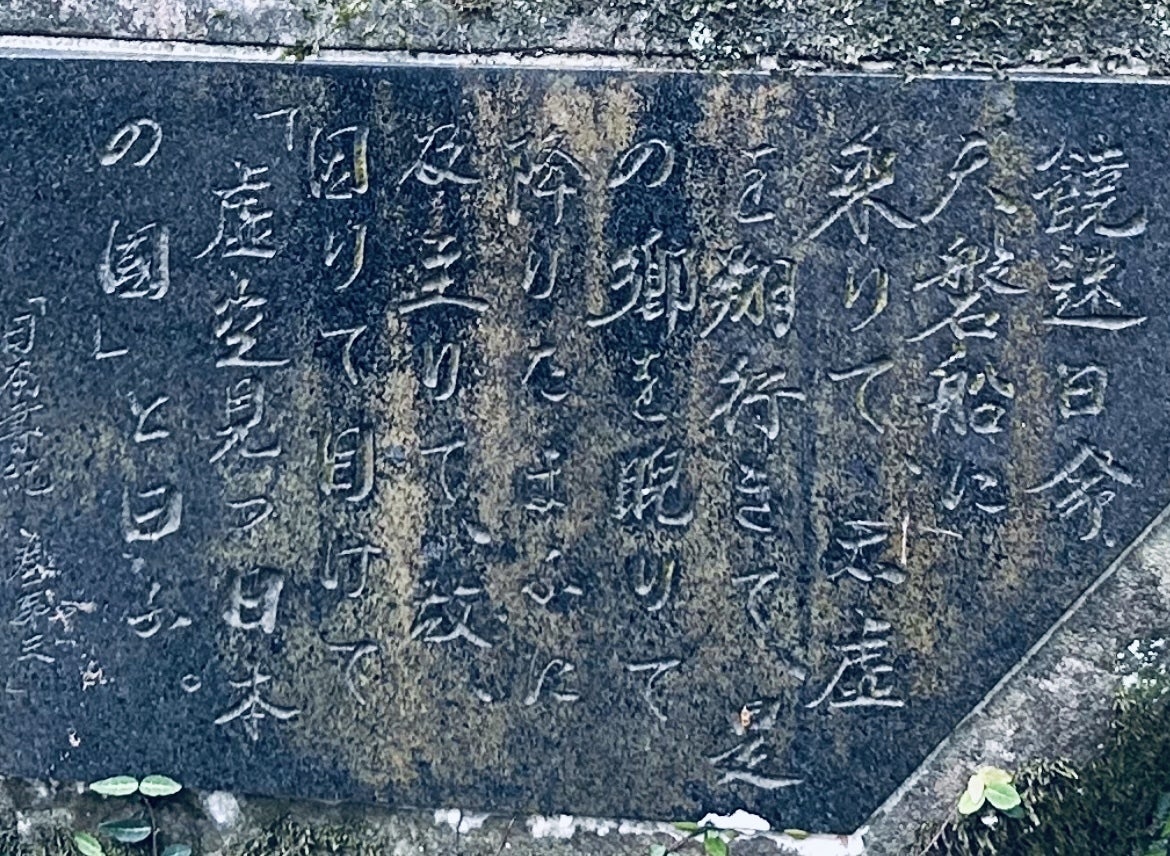 饒速日命
天磐船に
乗りて、太虚
を翔行きて、是
の郷を睨りて
降りたまふに
及至りて、故、
因りて目けて
「虚空見つ日本
の國」と曰ふ。